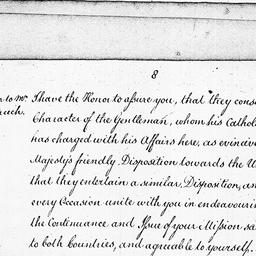 8
to Mr.
I have the Honor to assure you, that they cons
Character of the Gentleman, whom his Catho
has charged with his Affairs here, as evinciv
Majesty's friendly Disposition towards the U
that they entertain a similar Disposition, an
every Occasion unite with you in endeavouri
the Continuance and Issue of your Mission sa
to both Countries, and agreeable to yourself.